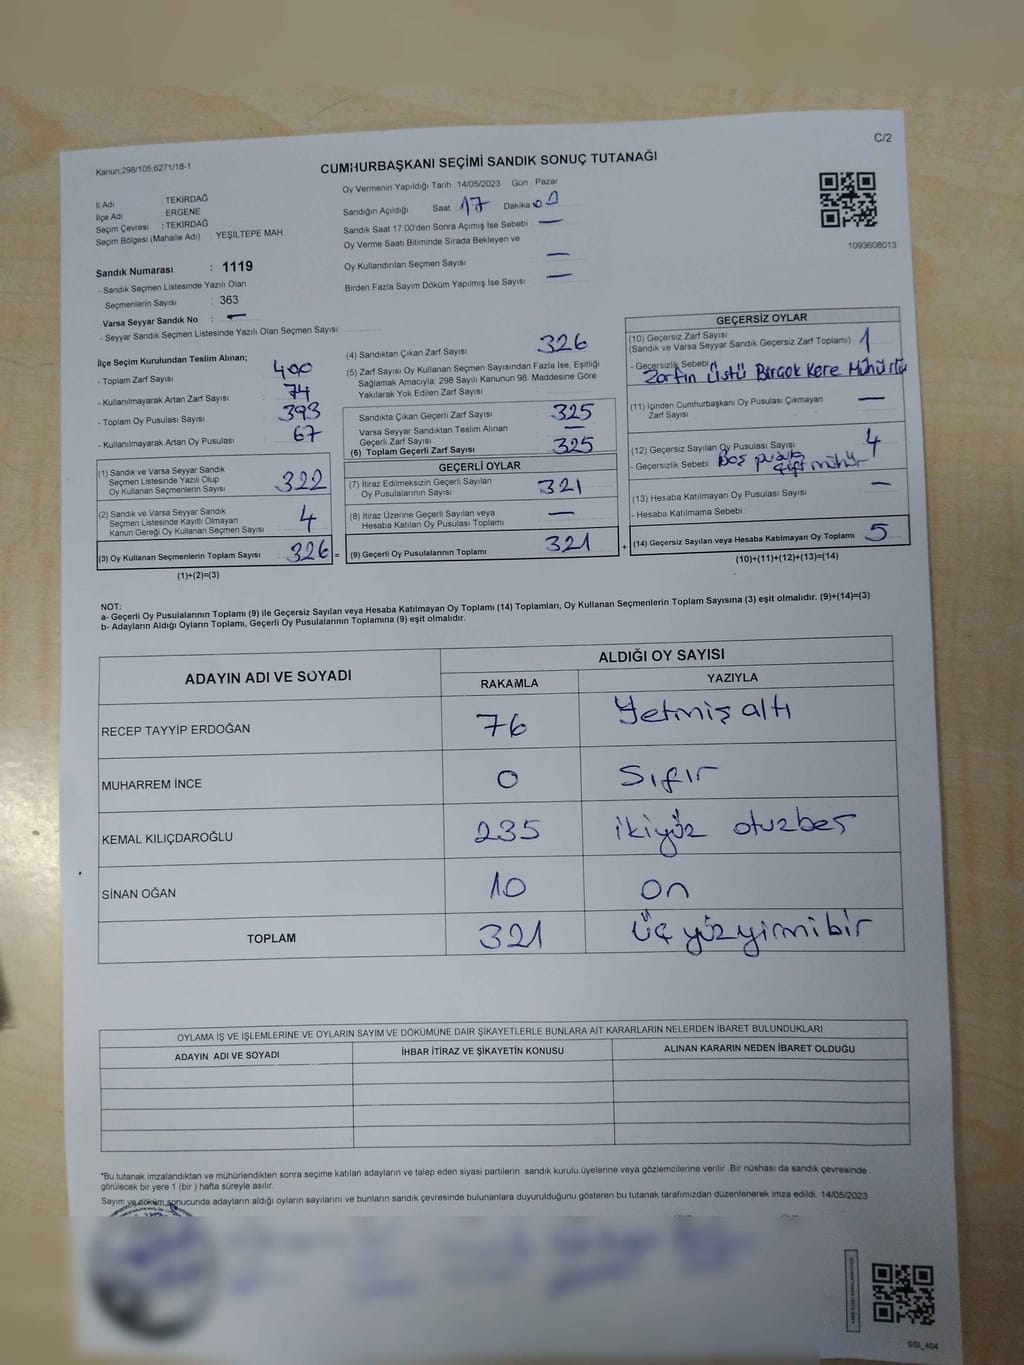 C/2
Kanun;298/105;6271/18-1
CUMHURBAŞKANI SEÇİMİ SANDIK SONUÇ TUTANAĞI
İl Adı : TEKİRDAĞ
İlçe Adı : ERGENE
Seçim Çevresi : TEKİRDAĞ
Seçim Bölgesi (Mahalle Adı) YEŞİLTEPE MAH.
Sandık Numarası : 1119
- Sandık Seçmen Listesinde Yazılı Olan
Seçmenlerin Sayısı : 363
Varsa Seyyar Sandık No : -
- Seyyar Sandık Seçmen Listesinde Yazılı Olan Seçmen Sayısı:
Oy Vermenin Yapıldığı Tarih :14/05/2023 Gün : Pazar
Sandığın Açıldığı Saat 17 Dakika 00
Sandık Saat 17:00'den Sonra Açımış İse Sebebi -
Oy Verme Saati Bitiminde Sırada Bekleyen ve
Oy Kullandırılan Seçmen Sayısı -
Birden Fazla Sayım Döküm Yapılmış İse Sayısı: -
1093608013
İlçe Seçim Kurulundan Teslim Alınan;
- Toplam Zarf Sayısı : 400
- Kullanılmayarak Artan Zarf Sayısı : 74
- Toplam Oy Pusulası Sayısı : 393
- Kullanılmayarak Artan Oy Pusulası : 67
(1) Sandık ve Varsa Seyyar Sandık
Seçmen Listesinde Yazılı Olup
Oy Kullanan Seçmenlerin Sayısı 322
(2) Sandık ve Varsa Seyyar Sandık
Seçmen Listesinde Kayıtlı Olmayan
Kanun Gereği Oy Kullanan Seçmen Sayısı 4
(3) Oy Kullanan Seçmenlerin Toplam Sayısı 326 =
(1)+(2)=(3)
(4) Sandıktan Çıkan Zarf Sayısı 326
(5) Zarf Sayısı Oy Kullanan Seçmen Sayısından Fazla İse, Eşitliği
Sağlamak Amacıyla, 298 Sayılı Kanunun 98. Maddesine Göre
Yakılarak Yok Edilen Zarf Sayısı
Sandıkta Çıkan Geçerli Zarf Sayısı 325
Varsa Seyyar Sandıktan Teslim Alınan
Geçerli Zarf Sayısı -
(6) Toplam Geçerli Zarf Sayısı 325
GEÇERLİ OYLAR
(7) İtiraz Edilmeksizin Geçerli Sayılan
Oy Pusulalarının Sayısı 321
(8) İtiraz Üzerine Geçerli Sayılan veya
Hesaba Katılan Oy Pusulası Toplamı -
(9) Geçerli Oy Pusulalarının Toplamı 321 +
GEÇERSİZ OYLAR
(10) Geçersiz Zarf Sayısı
(Sandık ve Varsa Seyyar Sandık Geçersiz Zarf Toplamı) 1
- Geçersizlik Sebebi Zarfın Üstü Birçok Kere Mühürlü
(11) İçinden Cumhurbaşkanı Oy Pusulası Çıkmayan
Zarf Sayısı -
(12) Geçersiz Sayılan Oy Pusulası Sayısı 4
- Geçersizlik Sebebi Boş pusula çift mühür
(13) Hesaba Katılmayan Oy Pusulası Sayısı -
- Hesaba Katılmama Sebebi :
(14) Geçersiz Sayılan veya Hesaba Katılmayan Oy Toplamı 5
(10)+(11)+(12)+(13)=(14)
NOT:
a- Geçerli Oy Pusulalarının Toplamı (9) ile Geçersiz Sayılan veya Hesaba Katılmayan Oy Toplamı (14) Toplamları, Oy Kullanan Seçmenlerin Toplam Sayısına (3) eşit olmalıdır. (9)+(14)=(3)
b- Adayların Aldığı Oyların Toplamı, Geçerli Oy Pusulalarının Toplamına (9) eşit olmalıdır.
ADAYIN ADI VE SOYADI ALDIĞI OY SAYISI
RAKAMLA YAZIYLA
RECEP TAYYİP ERDOĞAN 76 Yetmiş altı
MUHARREM İNCE 0 Sıfır
KEMAL KILIÇDAROĞLU 235 ikiyüz otuzbeş
SİNAN OĞAN 10 On
TOPLAM 321 üç yüz yirmi bir
OYLAMA İŞ VE İŞLEMLERİNE VE OYLARIN SAYIM VE DÖKÜMÜNE DAİR ŞİKAYETLERLE BUNLARA AİT KARARLARIN NELERDEN İBARET BULUNDUKLARI
ADAYIN ADI VE SOYADI İHBAR İTİRAZ VE ŞİKAYETİN KONUSU ALINAN KARARIN NEDEN İBARET OLDUĞU
*Bu tutanak imzalandıktan ve mühürlendikten sonra seçime katılan adayların ve talep eden siyasi partilerin sandık kurulu üyelerine veya gözlemcilerine verilir. Bir nüshası da sandık çevresinde
görülecek bir yere 1 (bir ) hafta süreyle asılır.
Sayım ve döküm sonucunda adayların aldığı oyların sayılarını ve bunların sandık çevresinde bulunanlara duyurulduğunu gösteren bu tutanak tarafımızdan düzenlenerek imza edildi. 14/05/2023
SSI_404